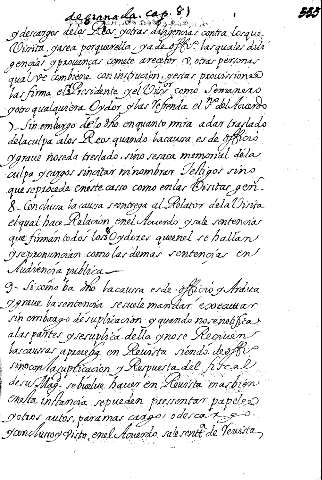 de granada. cap. 8)
525
y descargos de los Reos, y otras diligencias contra los que
Visita, ya sea por querella, ya de offiº. las quales dili
gencias y provanças comete a receptor v, otras personas
qual ve combiene con instrucion, y estas provissiones
las firma el Presidente, y el como Semanero
y otro qualquiera Oydor, y las refrenda el del Acuerdo
7. Sin embargo de lo dho en quanto mira a dar traslado
de la culpa a los Reos, quando la causa es de officio
y grave no se da treslado, sino se saca memorial de la
culpa y cargos sin citar ni nombrar Testigos sino
que se procede en este casso como en las Visitas gen
8. Conclusa la causa se entrega al Relator de la Visita
el qual hace Relacion en el Acuerdo, y sale sentencia
que firman todos los Oydores que en el se hallan
y se pronuncian como las demas sentencias en
Audiencia publica
9. Si como ba dho la causa es de officio y Ardua
y grave la sentencia se suele mandar executar
sin embargo de suplicacion, y quando no se notifica
a las partes y se suplica de ella, y no se Reciven
las causas a prueba en Revista siendo de offiº
sino con la suplicacion y Respuesta del fiscal
de su Magᵈ. se buelve haver en Revista, mas bien
en esta instancia se pueden pressentar papeles
y otros autos, para mas cargo, o descargo
y concluso, y visto, en el Acuerdo, sale sentª de Revista